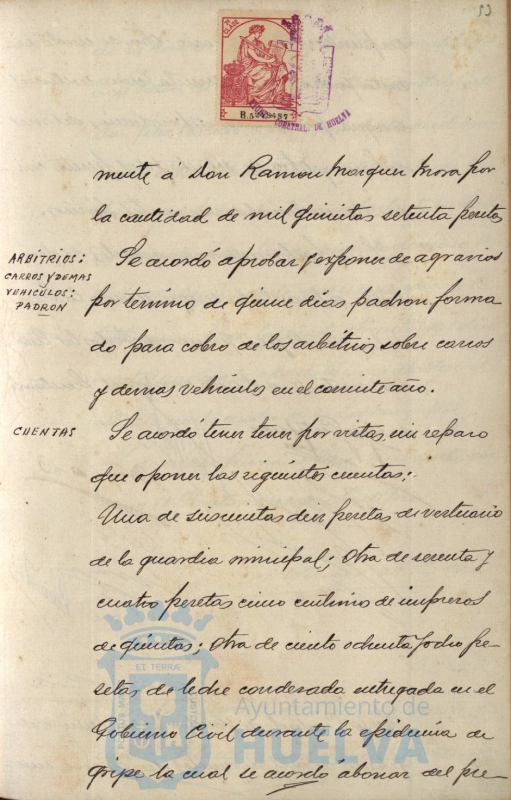 9ª CLASE
B.5
COBETRAL. DE HUELVA
mente á Don Ramon Marquez Mora por
la cantidad de mil quinientas setenta pesetas
ARBITRIOS:
CARROS Y DEMAS
VEHICULOS:
PADRON
Se acordó aprobar y exponer de agravios
por termino de quince dias padron forma
do para cobro de los arbitrios sobre carros
y demas vehiculos en el corriente año.
CUENTAS
Se acordó tener tener por vistas sin reparo
que oponer las siguientes cuentas:
Una de seiscientas diez pesetas de vestuario
de la guardia municipal; Otra de sesenta y
cuatro pesetas cinco centimos de impresos
de quintas; Otra de ciento ochenta y ocho pe-
setas de leche condensada entregada en el
Gobierno Civil durante la epidemia de
gripe la cual se acordó abonar del pre-
ET TERRÆ
Ayuntamiento de
HUELVA